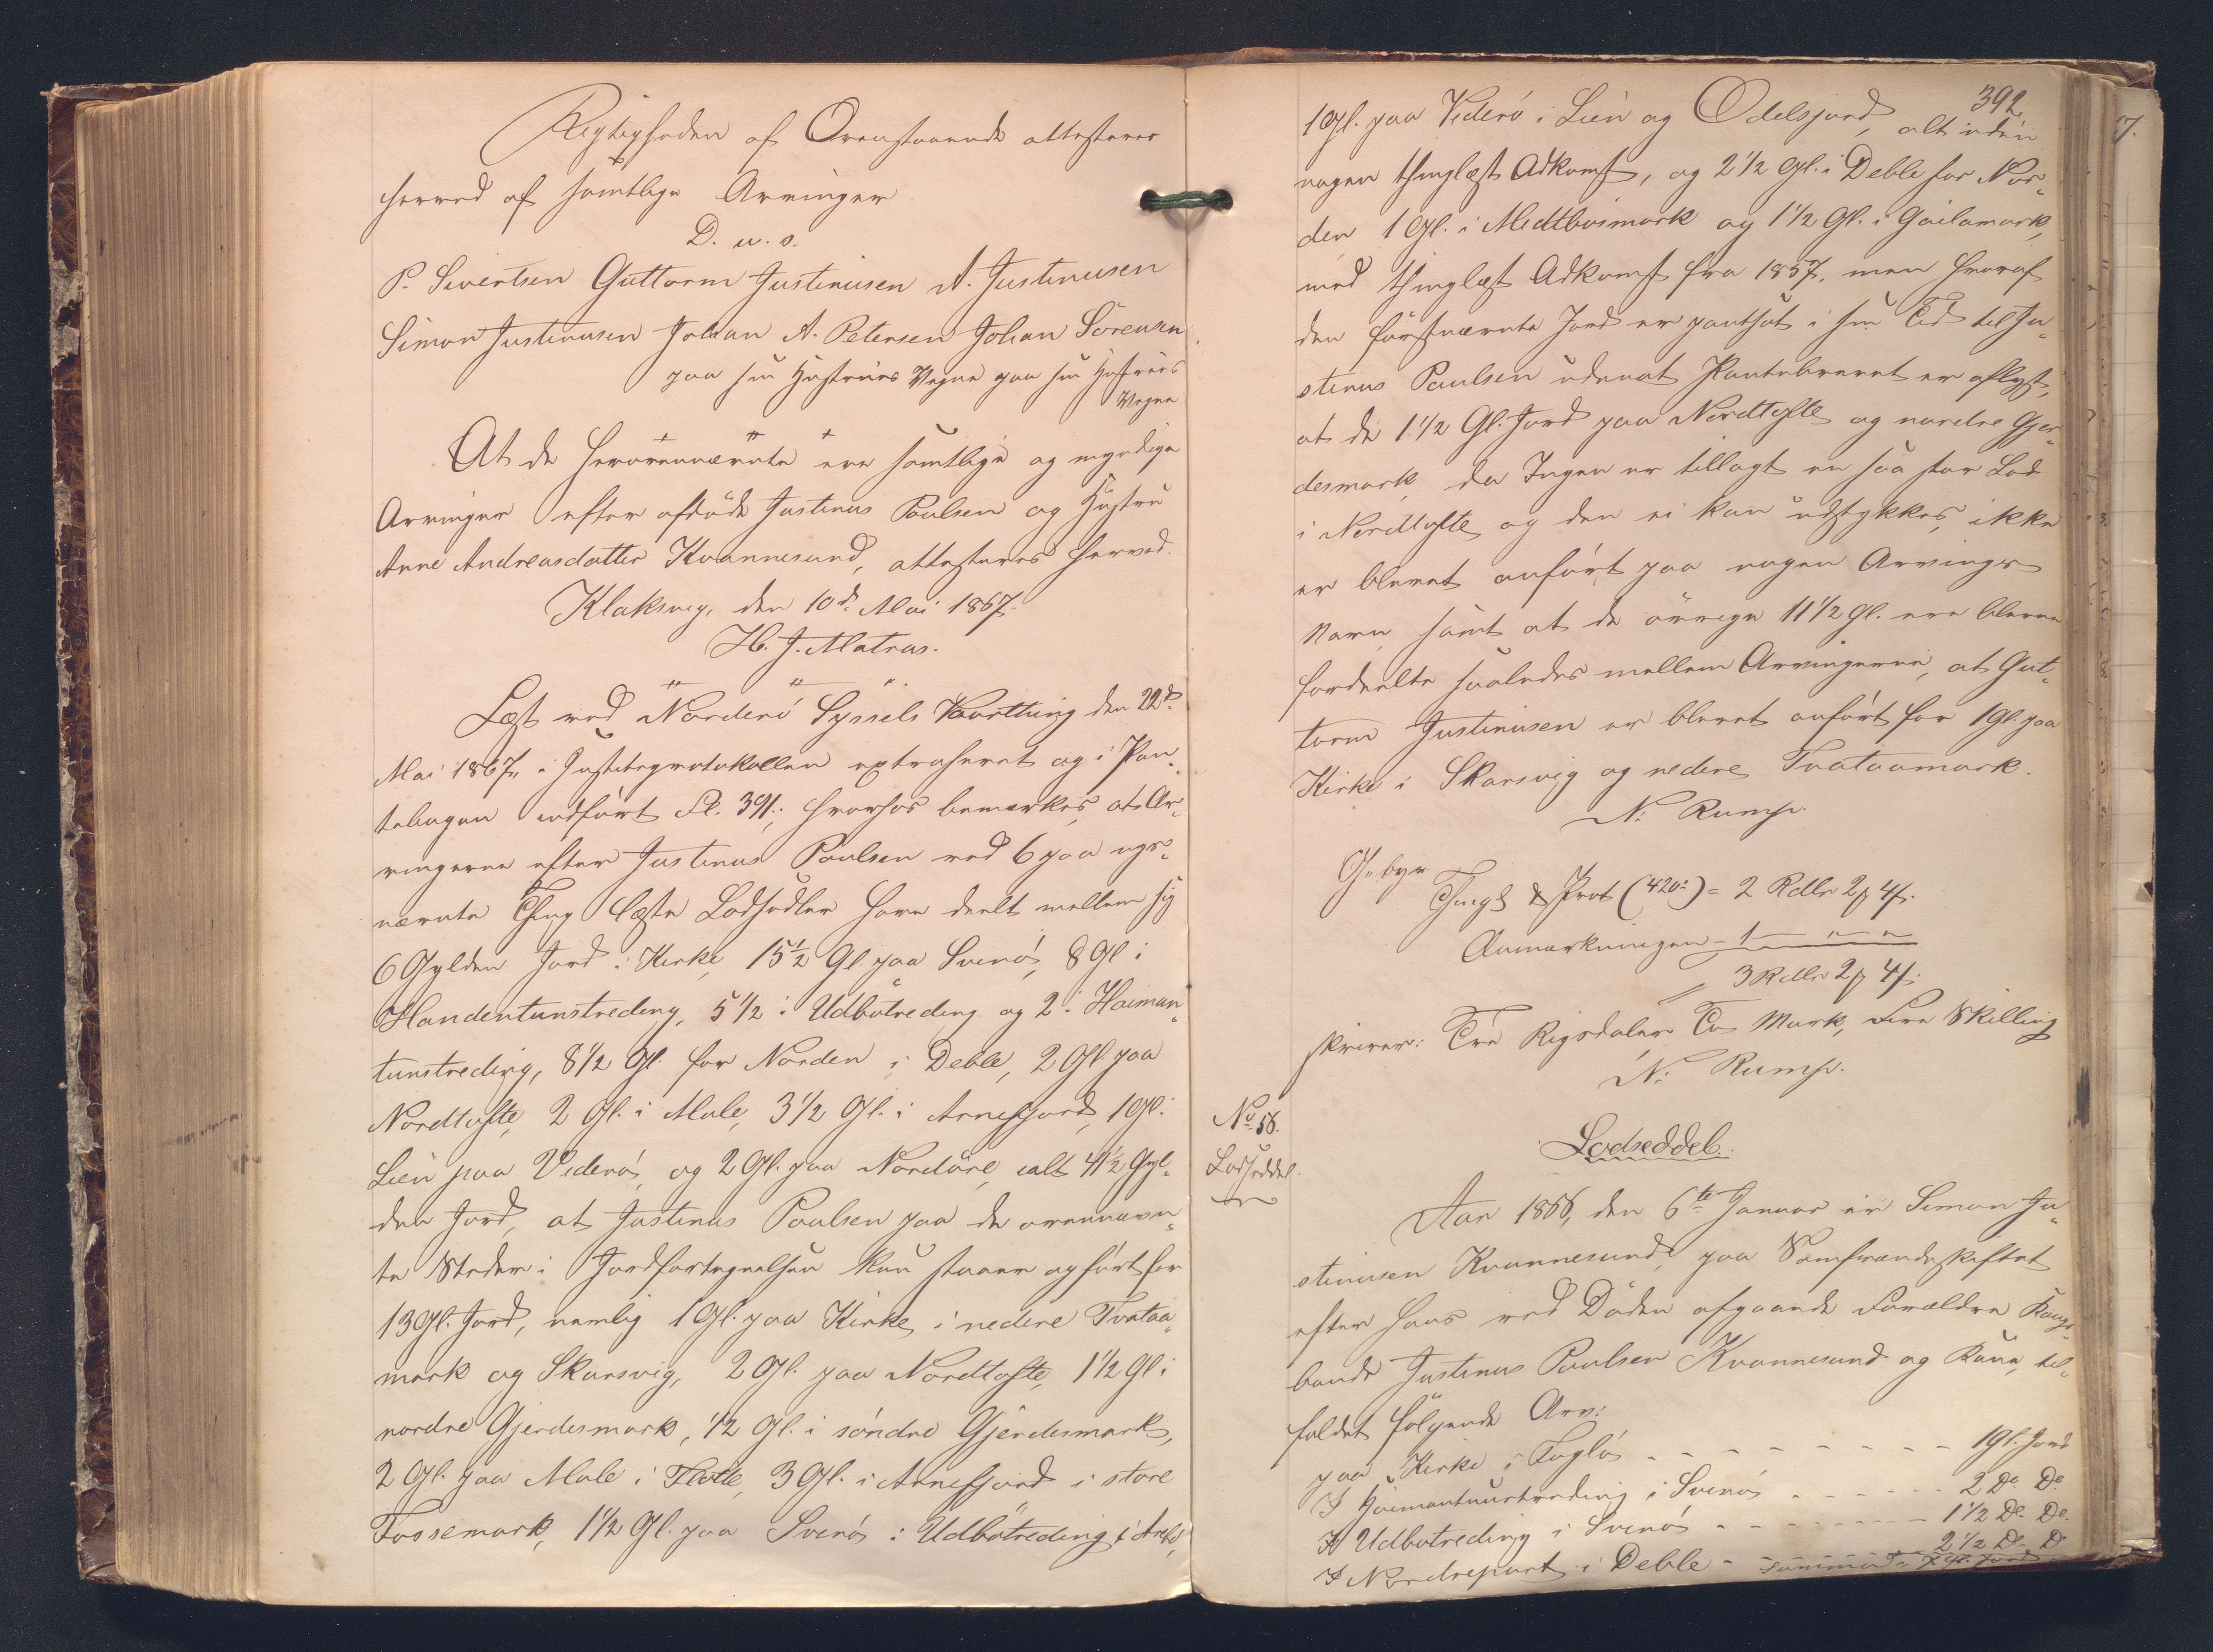 Rigtigheden af Ovenstaaende attesteres
herved af samtlige Arvinger
D. u. s.
P. Sivertsen Guttorm Justinusen A. Justinusen
Simon Justinusen Johan A. Petersen Johan Sörensen
paa sin Hustrues Vegne paa sin Hustrues
Vegne
At de herovennævnte ere samtlige og myndige
Arvinger efter afdöde Justinus Poulsen og Hustru
Anne Andreasdatter Kvannesund, attesteres herved.
Klaksvig, den 10de Mai 1867.
H. J. Matras.
Læst ved Norderö Syssels Vaarthing den 22de
Mai 1867, i Justitsprotokollen extraheret og i Pan¬
tebogen indfört Fl. 391.; hvorhos bemærkes, at Ar¬
vingerne efter Justinus Poulsen ved 6 paa ngv¬
nævnte Thing læste Lodsedler have deelt mellem sig
6 Gylden Jord i Kirke, 15½ Gl. paa Svinö, 8 Gl i
Handentunstreding, 5½ i Udbötreding og 2 i Heiman¬
tunstreding, 8½ Gl. for Norden i Deble, 2 Gl paa
Nordtofte, 2 Gl. i Mule, 3½ Gl. i Arnefjord, 1 Gl. i
Lien paa Viderö, og 2 Gl. paa Nordöre, ialt 41½ Gyl¬
den Jord, at Justinus Poulsen paa de ovennævn¬
te Steder i Jordfortegnelsen kun staaer opfört for
13 Gl. Jord, nemlig 1 Gl. paa Kirke i nedere Tvataa¬
mark og Skarsvig, 2 Gl. paa Nordtofte, 1½ Gl i
nordre Gjerdesmark, ½ Gl. i söndre Gjerdesmark,
2 Gl. paa Mule i Flatte, 3 Gl. i Arnefjord i store
Fossemark, 1½ Gl. paa Svinö i Udbötreding i
392
1 Gl. paa Viderö i Lien og Odelsjord, alt uden
nogen thinglæst Adkomst, og 2½ Gl. i Deble for Nor¬
den 1 Gl. i Midtbösmark og 1½ Gl. i Gailamark,
med thinglæst Adkomst fra 1857, men hvoraf
den förstnævnte Jord er pantsat i sin Tid til Ju¬
stinus Poulsen uden at Pantebrevet er aflyst,
at de 1½ Gl. Jord paa Nordtofte og nordre Gjer¬
desmark, da Ingen er tillagt en saa stor Lod
i Nordtofte og den ei kan udstykkes, ikke
er blevet anfört paa nogen Arvings
Navn, samt at de övrige 11½ Gl. ere blevne
fordeelte saaledes mellem Arvingerne, at Gut¬
torm Justinusen er blevet anfört for 1 Gl. paa
Kirke i Skarsvig og nedere Tvataamark.
N. Rump.
Gebyr
Thingl & Prot (420) = 2 Rdlr 2 4
Anmærkningen - 1 — " — "
3 Rdlr 2 4
skriver: Tre Rigsdaler To Mark, Fire Skilling
N. Rump.
No 58.
Lodseddel.
Lodseddel.
Aar 1866, den 6te Januar er Simon Ju¬
stinusen Kvannesund, paa Samfrændeskiftet
efter hans ved Döden afgaaende Forældre Kongs¬
bonde Justinus Poulsen Kvannesund og Kone, til¬
faldet fölgende Arv:
paa Kirke i Fuglö - - - - - - - - 1 Gl. Jord
I Heimantuunstreding i Svinö - - - - - - 2 Do Do
I Udbötreding i Svinö - - - - - - - 1½ Do Do
I Nordrepart i Deble - - 2½ Do D
Summa 7 Gl. Jord